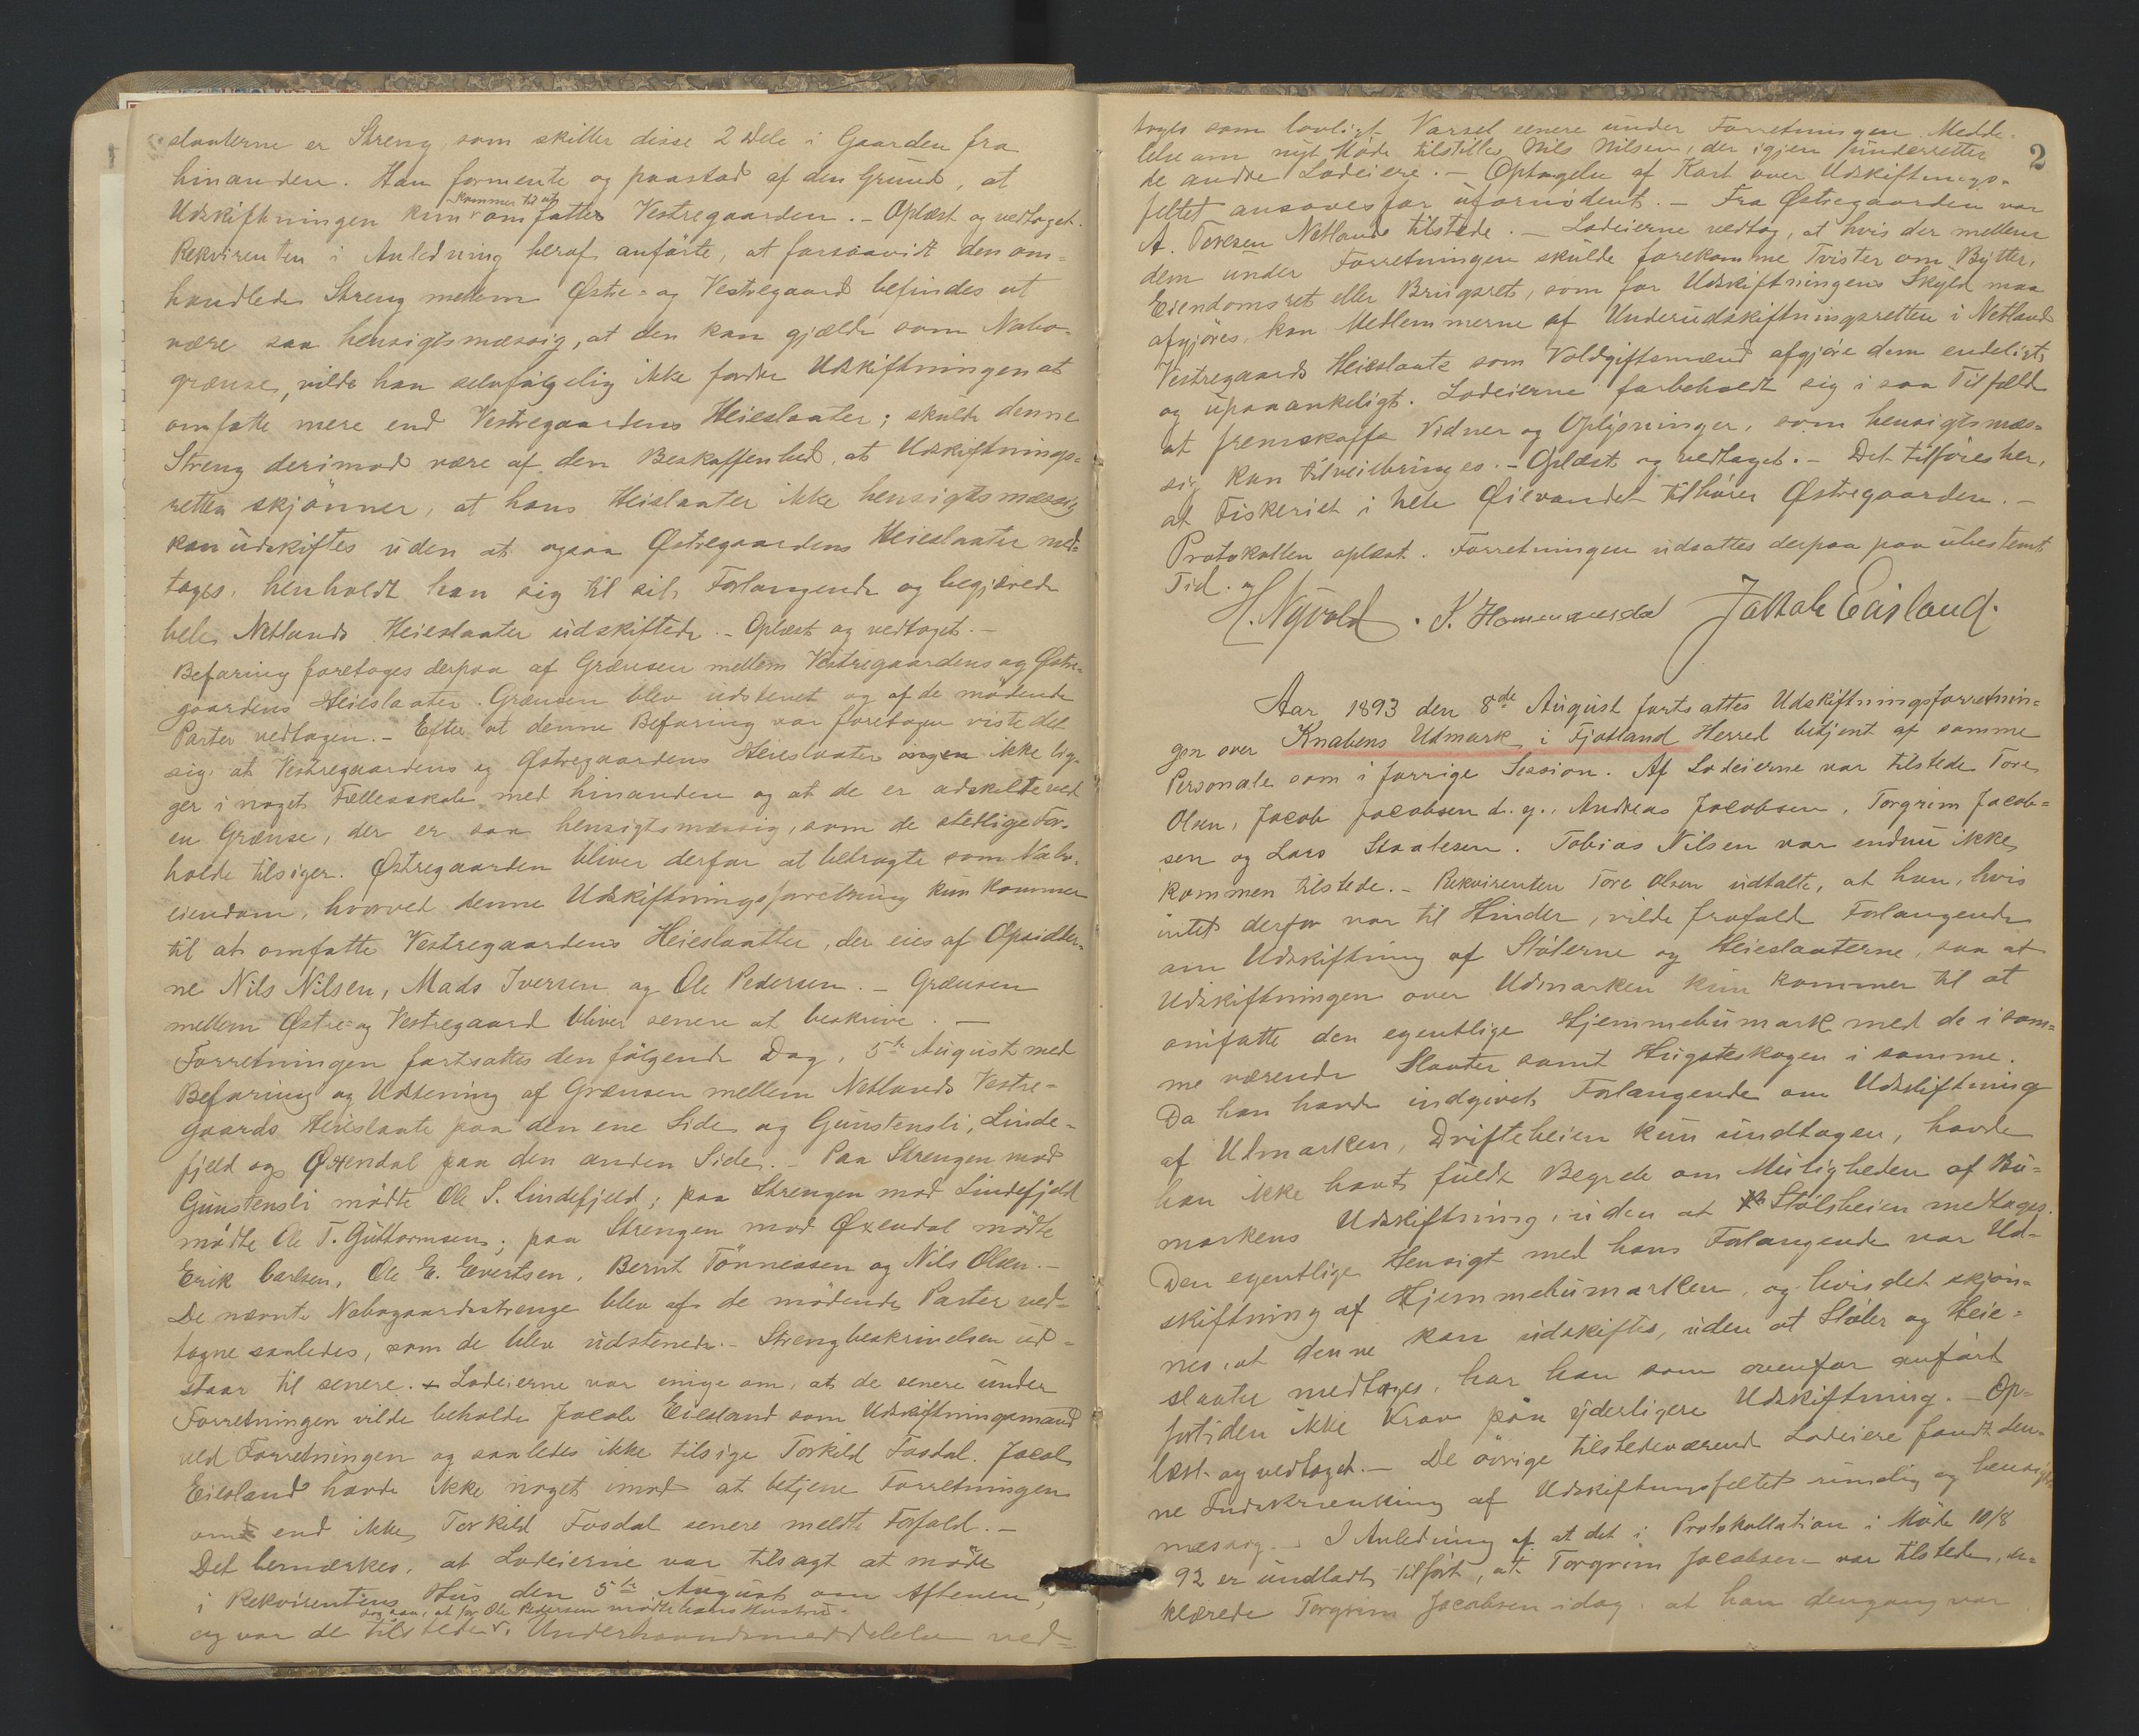 slaaterne er Streng, som skiller disse 2 Dele i Gaarden fra
hinanden. Han formente og paastod af den Grund, at
Udskiftningen kun kommer til at omfatte Vestregaarden. - Oplæst og vedtaget.
Rekvirenten i Anledning heraf anførte, at forsaavidt den om-
handlede Streng mellem Østre- og Vestregaard befindes at
være saa hensigtsmæssig, at den kan gjælde som Nabo-
grænse, vilde han selvfølgelig ikke fordre Udskiftningen at
omfatte mere end Vestregaardens Heieslaater; skulde denne
Streng derimod være af den Beskaffenhed, at Udskiftnings-
retten skjønner, at hans Heislaater ikke hensigtsmæssig
kan udskiftes uden at ogsaa Østregaardens Heieslaater med-
tages, henholdt han sig til sit Forlangende og begjærede
hele Netlands Heieslaater udskiftede. - Oplæst og vedtaget. -
Befaring foretoges derpaa af Grænsen mellem Vestregaardens og Østre-
gaardens Heieslaater. Grænsen blev udstenet og af de mødende
Parter vedtagen. - Efter at denne Befaring var foretagen viste det
sig, at Vestregaardens og Østregaardens Heieslaater ikke lig-
ger i noget Fællesskab med hinanden og at de er adskilte ved
en Grænse, der er saa hensigtsmæssig, som de stedlige For-
holde tilsiger. Østregaarden bliver derfor at betragte som Nabo-
eiendom, hvorved denne Udskiftningsforretning kun kommer
til at omfatte Vestregaardens Heieslaatter, der eies af Opsidder-
ne Nils Nilsen, Mads Iversen og Ole Pedersen. - Grænsen
mellem Østre- og Vestregaard bliver senere at beskrive. -
Forretningen fortsattes den følgende Dag, 5te August med
Befaring og Udstening af Grænsen mellem Netlands Vestre-
gaards Heieslaate paa den ene Side og Gunstensli, Linde-
fjeld og Øxendal paa den anden Side. - Paa Strengen mod
Gunstensli mødte Ole S. Lindefjeld; paa Strengen mod Lindefjeld
mødte Ole T. Guttormsen; paa Strengen mod Øxendal mødte
Erik Carlsen, Ole E. Evertsen, Bernt Tønnessen og Nils Olsen. -
De nævnte Nabogaardsstrenge blev af de mødende Parter ved-
tagne saaledes, som de blev udstenede. - Strengbeskrivelsen ud-
staar til senere. - Lodeierne var enige om, at de senere under
Forretningen vilde beholde Jacob Eiesland som Udskiftningsmand
ved Forretningen og saaledes ikke tilsige Torkild Fosdal. Jacob
Eiesland havde ikke noget imod at betjene Forretningen
om end ikke Torkild Fosdal senere meldte Forfald. -
Det bemærkes, at Lodeierne var tilsagt at møde
i Rekvirentens Hus den 5te August om Aftenen,
og var de tilstede, dog saa, at for Ole Pedersen mødte hans Hustru. Underhaandsmeddelelse ved-
2
toges som lovligt Varsel senere under Forretningen. Medde-
lelse om nyt Møde tilstilles Nils Nilsen, der igjen underretter
de andre Lodeiere. - Optagelse af Kart over Udskiftnings-
feltet ansaaes for ufornødent. - Fra Østregaarden var
A. Teresen Netland tilstede. - Lodeierne vedtog, at hvis der mellem
dem under Forretningen skulde forekomme Tvister om Bytter,
Eiendomsret eller Brugsret, som for Udskiftningens Skyld maa
afgjøres, kan Medlemmerne af Underudskiftningsretten i Netland
Vestregaards Heieslaate som Voldgiftsmænd afgjøre dem endeligt
og upaaankeligt. Lodeierne forbeholdt sig i saa Tilfælde
at fremskaffe Vidner og Oplysninger, som hensigtsmæs-
sig kan tilveiebringes. - Oplæst og vedtaget. - Det tilføies her,
at Fiskeriet i hele Øievandet tilhører Østregaarden. -
Protokollen oplæst. Forretningen udsattes derpaa paa ubestemt
Tid.
H. Nyvold. K. Hommersdal Jakob Eiesland.
Aar 1893 den 8de August fortsattes Udskiftningsforretnin-
gen over Knabens Udmark i Fjotland Herred betjent af samme
Personale som i forrige Session. Af Lodeierne var tilstede Tore
Olsen, Jacob Jacobsen d. y., Andreas Jacobsen, Torgrim Jacob-
sen og Lars Staalesen. Tobias Nilsen var endnu ikke
kommen tilstede. - Rekvirenten Tore Olsen udtalte, at han, hvis
intet derfor var til Hinder, vilde frafalde Forlangende
om Udskiftning af Stølerne og Heieslaaterne, saa at
Udskiftningen over Udmarken kun kommer til at
omfatte den egentlige Hjemmebumark med de i sam-
me værende Slaater samt Hugsteskogen i samme.
Da han havde indgivet Forlangende om Udskiftning
af Udmarken, Drifteheien kun undtagen, havde
han ikke havt fuldt Begreb om Muligheden af Bu-
markens Udskiftning, uden at Stølsheien medtages.
Den egentlige Hensigt med hans Forlangende var Ud-
skiftning af Hjemmebumarken, og hvis det skjøn-
nes, at denne kan udskiftes, uden at Støler og Heie-
slaater medtages, har han som ovenfor anført
fortiden ikke Krav paa yderligere Udskiftning. - Op-
læst og vedtaget. - De øvrige tilstedeværende Lodeiere fandt den-
ne Indskrænkning af Udskiftningsfeltet rimelig og hensigts-
mæssig. - I Anledning af at det i Protokollation i Møde 10/8
92 er undladt tilført, at Torgrim Jacobsen var tilstede, er-
klærede Torgrim Jacobsen idag, at han dengang var